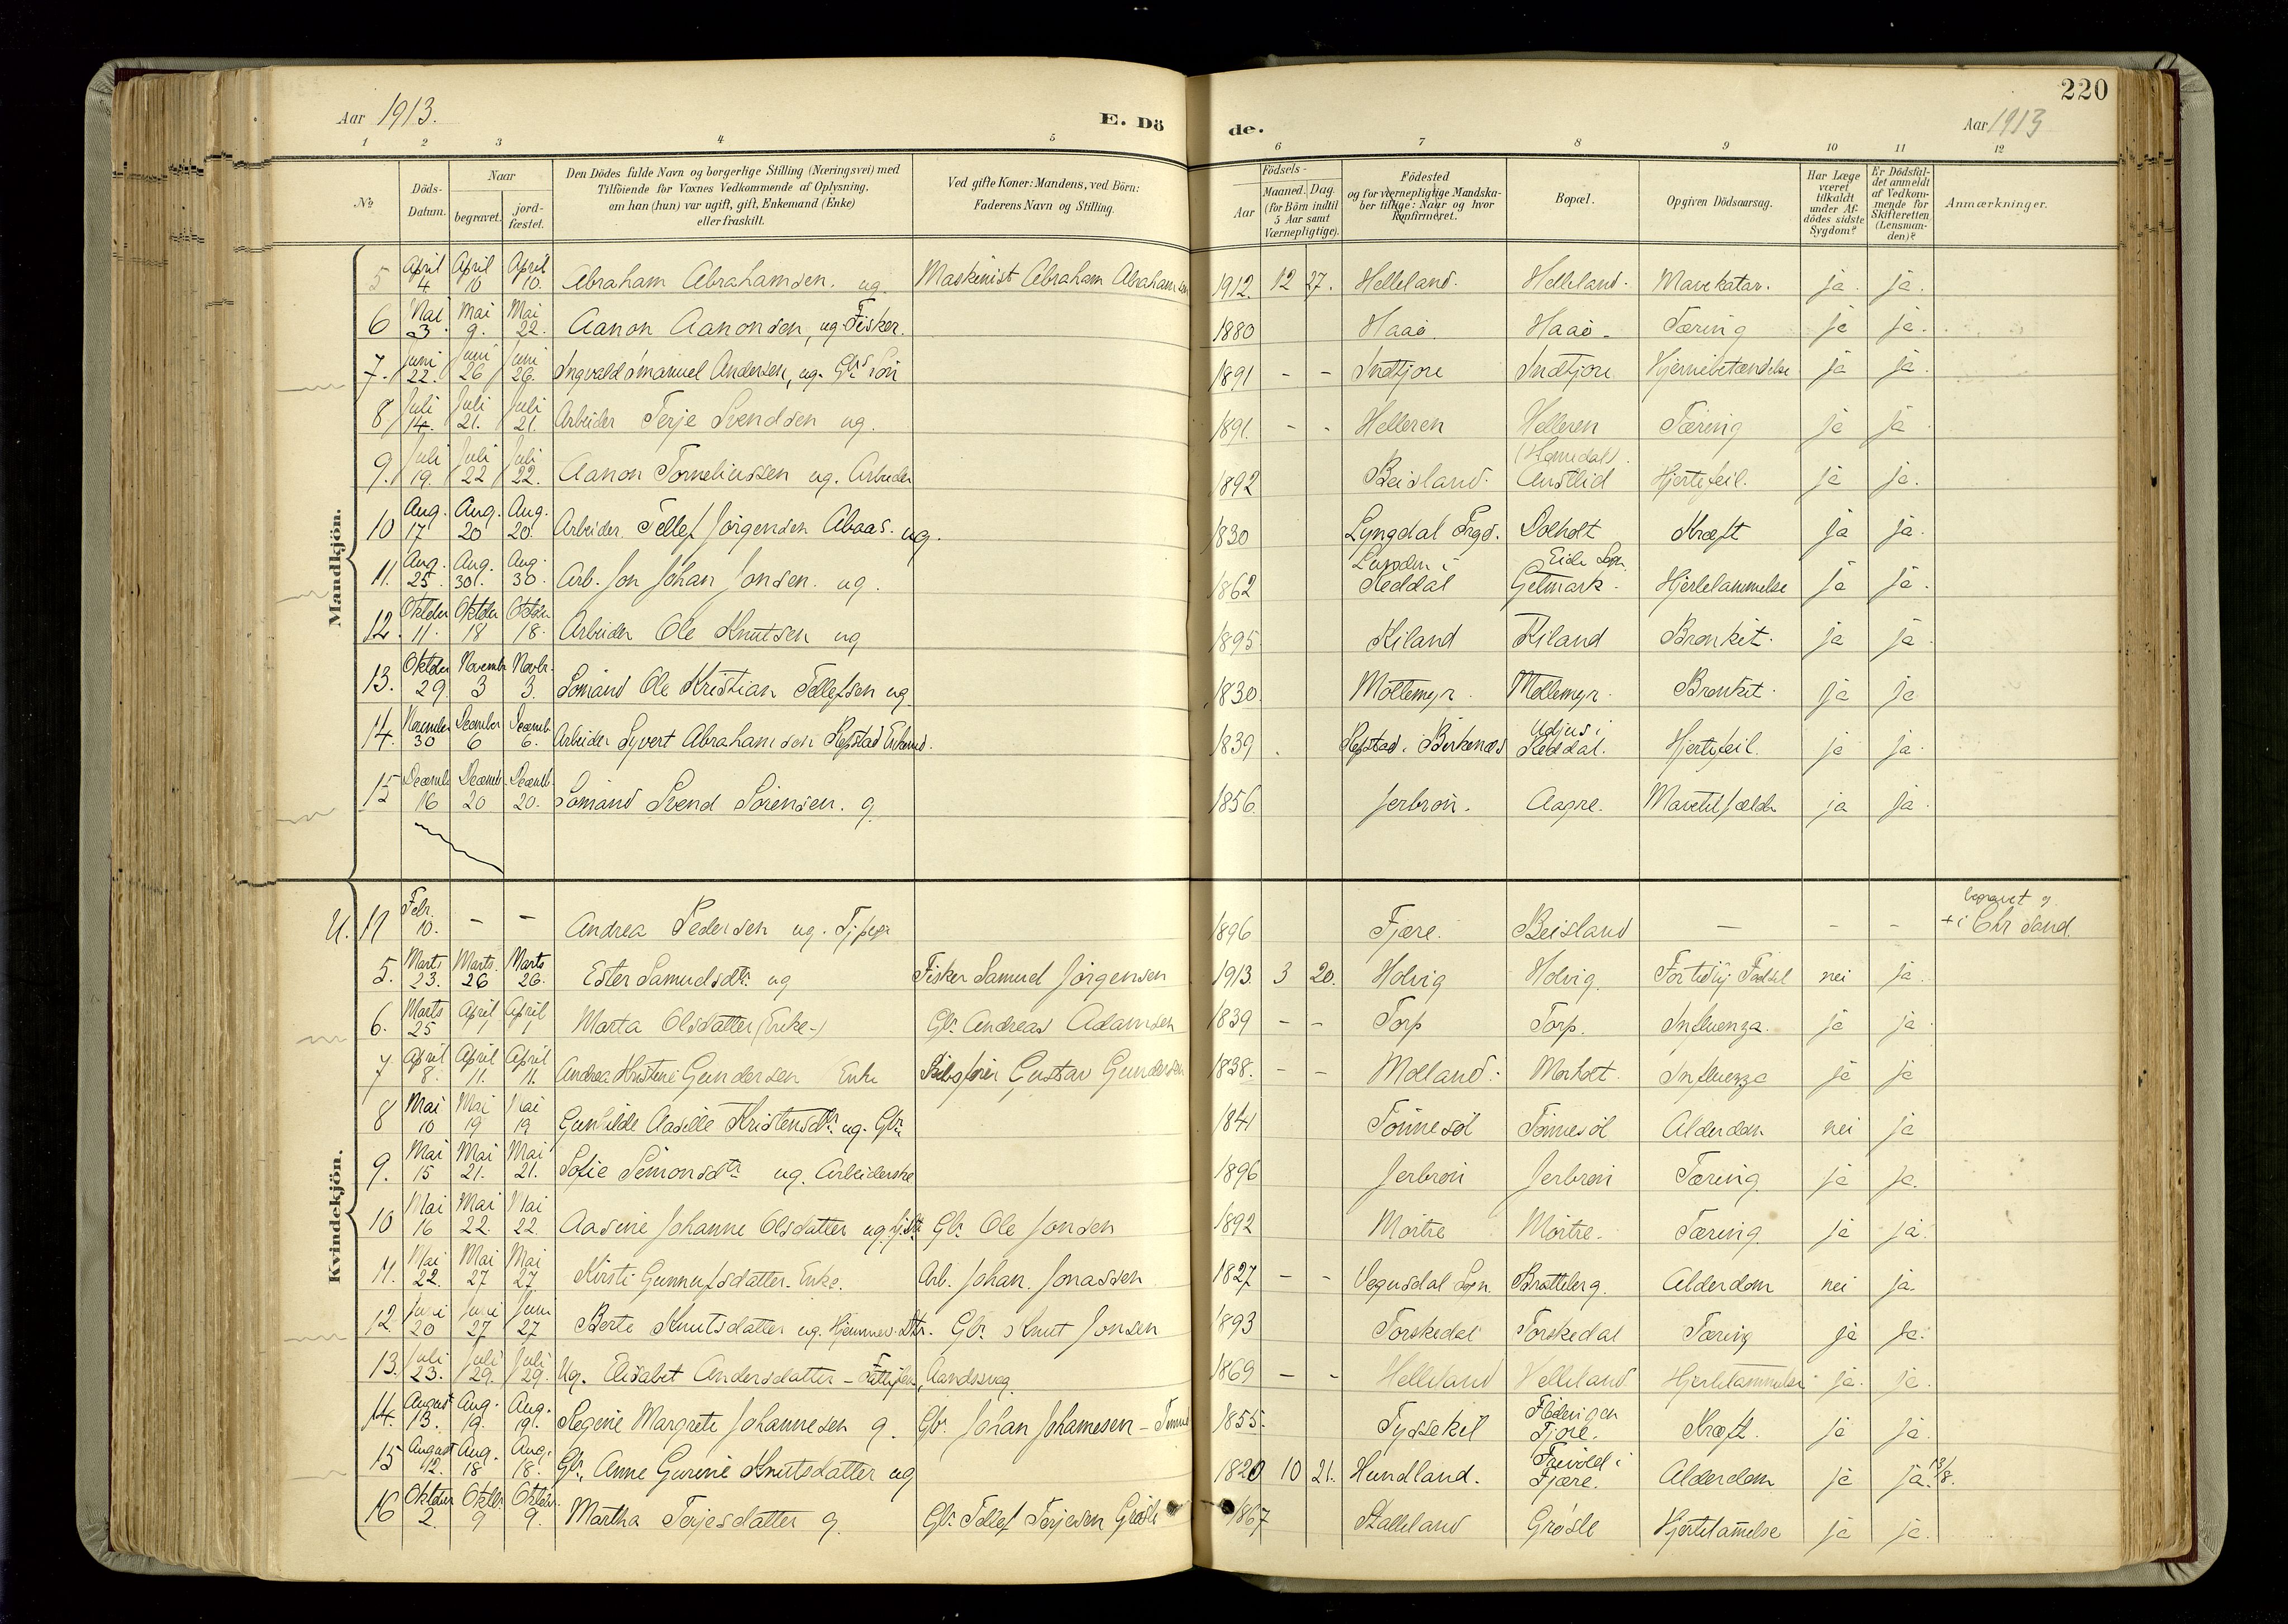 220
Aar 1913.
E. Dö
de.
Aar 1913
1 2 3 4 5 6 7 8 9 10 11 12
No
Döds-
Datum.
Naar
begravet.
jord-
fæstet.
Den Dödes fulde Navn og borgerlige Stilling (Næringsvei) med
Tilföiende for Voxnes Vedkommende af Oplysning,
om han (hun) var ugift, gift, Enkemand (Enke)
eller fraskilt.
Ved gifte Koner: Mandens, ved Börn:
Faderens Navn og Stilling.
Födsels-
Aar
Maaned. Dag.
(for Börn indtil
5 Aar samt
Værnepligtige).
Födested
og for værnepligtige Mandska-
ber tillige: Naar og hvor
konfirmeret.
Bopæl.
Opgiven Dödsaarsag.
Har Læge
været
tilkaldt
under Af-
dödes sidste
Sygdom?
Er Dödsfal-
det anmeldt
af Vedkom-
mende for
Skifteretten
(Lensman-
den)?
Anmærkninger.
Mandkjön.
5 April 4 April 10 April 10. Abraham Abrahamsen. ug. Maskinist Abraham Abrahamsen 1912. 12 27. Helleland. Helleland. Mavekatar. ja. ja.
6 Mai 3. Mai 9. Mai 22. Aanon Aanonsen, ug. Fisker. 1880 Haaö. Haaö. Tæring ja ja.
7. Juni 22. Juni 26 Juni 26. Ingvald Emanuel Andersen, ug. Gbr. Sön 1891 - - Indtjore Indtjore Hjernebetændelse ja ja.
8 Juli 14. Juli 21. Juli 21. Arbeider Terje Svendsen ug. 1891. - - Helleren Helleren Tæring ja ja
9. Juli 19. Juli 22 Juli 22. Aanon Torneliussen ug. Arbeider 1892 Beisland. (Homdal). Austlid Hjertefeil. ja ja.
10 Aug. 17 Aug. 20 Aug. 20. Arbeider Tellef Jörgensen Abaas. ug. 1830 Lyngdal Dolholt Kræft ja ja.
11. Aug. 25. Aug. 30. Aug. 30. Arb. Jon Johan Jonsen. ug. 1862 i Reddal Eide Sogn. Getmark. Hjertelammelse ja ja.
12. Oktober 11. Oktober 18 Oktober 18. Arbeider Ole Knutsen ug 1895. Kiland Kiland Bronkit. ja ja
13. Oktober 29. November 3 Novbr. 3. Sömand Ole Kristian Tellefsen ug. 1830. Möllemyr. Möllemyr. Bronkit. ja ja
14. November 30 December 6 Decemb. 6. Arbeider Syvert Abrahamsen Refstad Enkemd. 1839. Refstad i Birkenæs Udjus i Reddal. Hjertefeil. ja ja.
15 Decembr 16 Decemb. 20 Decemb. 20. Sömand Svend Sörensen. g. 1856. Jerbrön. Aagre. Mavetilfælde ja ja.
Kvindekjön.
U. 11 Febr. 10. - - Andrea Pedersen ug. Tjpige 1896 Fjære. Beisland - - - begravet og + i Chr.sand.
5. Marts 23. Marts. 26 Marts 26. Ester Samuelsdtr. ug Fisker Samuel Jörgensen 1913. 3 20. Holvig Holvig. Fortidlig Födsel nei ja.
6. Marts 25 April 1 April 1 Marta Olsdatter (Enke-) Gbr. Andreas Adamsen 1839 - - Torp Torp. Influenza. ja ja
7 April 8. April 11. April 11. Andrea Kristine Gundersen Enke Skibsförer Gustav Gundersen 1838. - - Molland. Morholt. Influenza ja ja
8 Mai 10 Mai 19 Mai 19 Gunhilde Aasille Kristensdtr. ug. Gbr. 1841 Tönnesöl Tönnesöl Alderdom nei ja
9. Mai 15 Mai 21. Mai 21. Sofie Simonsdtr. ug. Arbeiderske 1896 Jerbrön Jerbrön Tæring. ja ja.
10 Mai 16 Mai 22. Mai 22. Aasine Johanne Olsdatter ug. Gbr. Ole Jonsen 1892 Mörtre Mörtre. Tæring. ja ja.
11. Mai 22. Mai 27 Mai 27 Kirsti Gunnufsdatter. Enke. Arb. Johan Jonassen 1827 - - Vegusdal Sgn. Brattlberg. Alderdom nei ja.
12. Juni 20 Juni 27 Juni 27 Berte Knutsdatter ug. Hjemmev. Dtr. Gbr. Knut Jonsen 1893 Torskedal Torskedal Tæring ja ja.
13. Juli 23. Juli 29. Juli 29. Ug. Elisabet Andersdatter - Aandssvag 1869 - - Helleland Helleland. Hjertelammelse ja. ja.
14. August 13. Aug. 19. Aug. 19. Regine Margrete Johannesen g. Gbr. Johan Johannesen - 1855. Tyssekil Fjære. Kræft. ja ja.
15 August 12. Aug. 18 Aug. 18. Gbr. Anne Gurine Knutsdatter ug 1820 10 21. Hundland. Trivold i Fjære. Alderdom ja ja. 13/8.
16 Oktober 2. Oktbr. 9 Oktobr. 9. Martha Terjesdatter g. Gbr. Tellef Terjesen Grösle 1867 Stalleland Grösle Hjertelammelse ja ja.